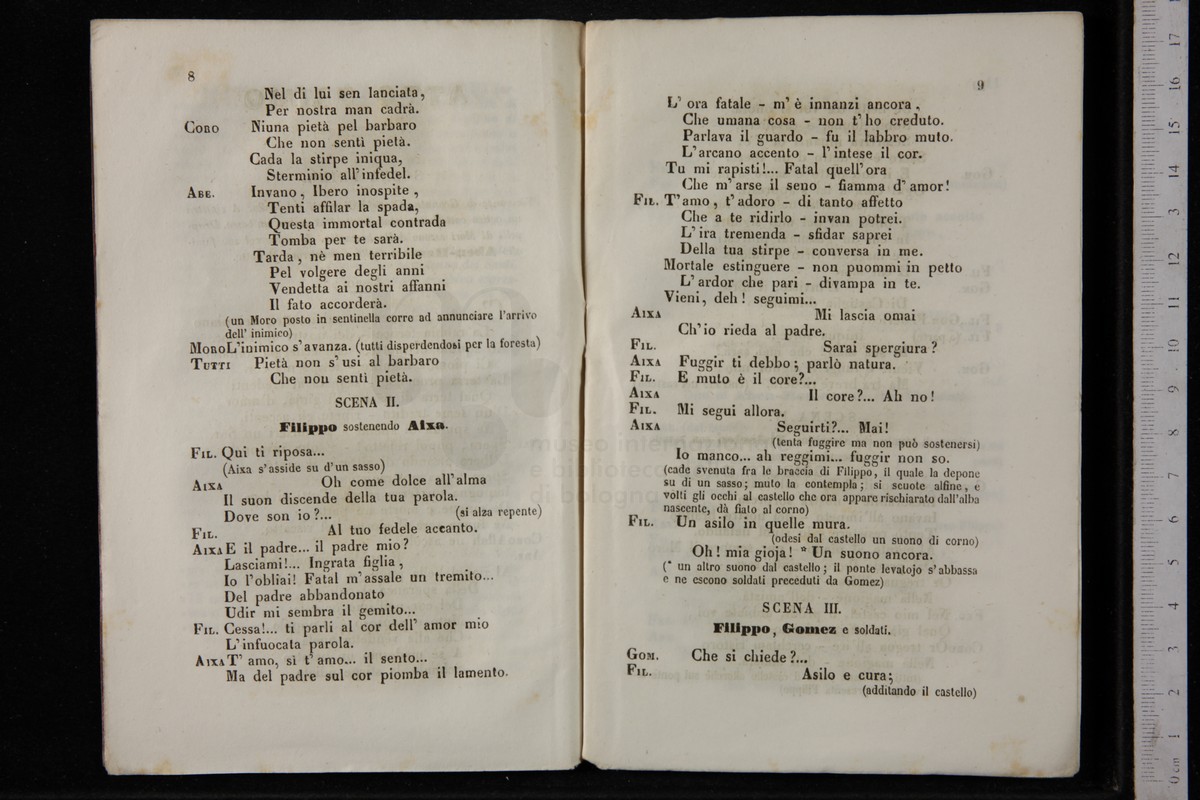 8
Nel di lui sen lanciata,
Per nostra man cadrà.
CORO Niuna pietà pel barbaro
Che non sentì pietà.
Cada la stirpe iniqua,
Sterminio all' infedel.
ABE. Invano, Ibero inospite,
Tenti affilar la spada,
Questa immortal contrada
Tomba per te sarà.
Tarda, nè men terribile
Pel volgere degli anni
Vendetta ai nostri affanni
Il fato accorderà.
(un Moro posto in sentinella corre ad annunciare l'arrivo
dell' inimico)
MORO L'inimico s'avanza. (tutti disperdendosi per la foresta)
TUTTI Pietà non s'usi al barbaro
Che non sentì pietà.
SCENA II.
Filippo sostenendo Aixa.
FIL. Qui ti riposa...
(Aixa s'asside su d'un sasso)
AIXA Oh come dolce all'alma
Il suon discende della tua parola.
Dove son io?... (si alza repente)
FIL. Al tuo fedele accanto.
AIXA E il padre... il padre mio?
Lasciami!... Ingrata figlia,
Io l'obliai! Fatal m'assale un tremito...
Del padre abbandonato
Udir mi sembra il gemito...
FIL. Cessa!... ti parli al cor dell' amor mio
L'infuocata parola.
AIXA T' amo, sì t'amo... il sento...
Ma del padre sul cor piomba il lamento.
9
L' ora fatale - m' è innanzi ancora.
Che umana cosa - non t'ho creduto.
Parlava il guardo - fu il labbro muto.
L'arcano accento - l'intese il cor.
Tu mi rapisti!... Fatal quell'ora
Che m'arse il seno - fiamma d'amor!
FIL. T'amo, t'adoro - di tanto affetto
Che a te ridirlo - invan potrei.
L'ira tremenda - sfidar saprei
Della tua stirpe - conversa in me.
Mortale estinguere - non puommi in petto
L'ardor che pari - divampa in te.
Vieni, deh! seguimi...
AIXA Mi lascia omai
Ch'io rieda al padre.
FIL. Sarai spergiura?
AIXA Fuggir ti debbo; parlò natura.
FIL. E muto è il core?...
AIXA Il core?... Ah no!
FIL. Mi segui allora.
AIXA Seguirti?... Mai!
(tenta fuggire ma non può sostenersi)
Io manco... ah reggimi... fuggir non so.
(cade svenuta fra le braccia di Filippo, il quale la depone
su di un sasso; muto la contempla; si scuote alfine, e
volti gli occhi al castello che ora appare rischiarato dall'alba
nascente, dà fiato al corno)
FIL. Un asilo in quelle mura.
(odesi dal castello un suono di corno)
Oh! mia gioja! * Un suono ancora.
(* un altro suono dal castello; il ponte levatojo s'abbassa
e ne escono soldati preceduti da Gomez)
SCENA III.
Filippo, Gomez e soldati.
GOM. Che si chiede?...
FIL. Asilo e cura;
(additando il castello)
museo internazionale
e biblioteca
di bologna